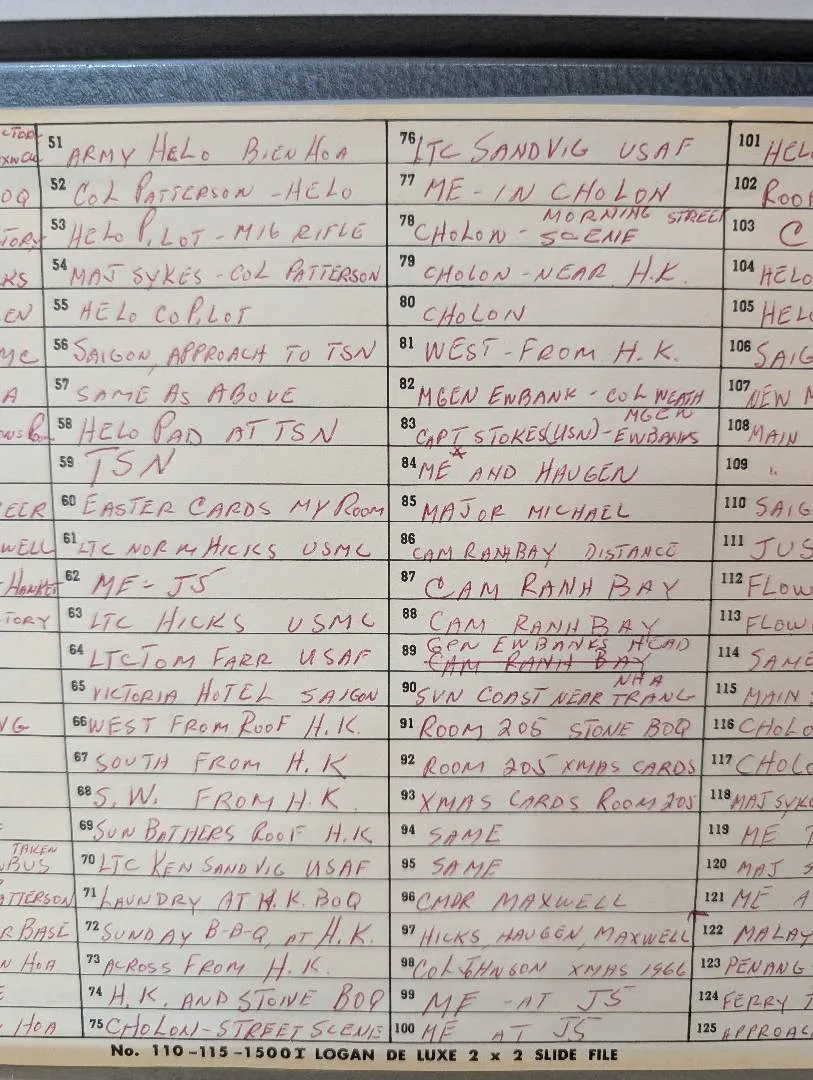 51 ARMY HELO BIEN HOA
52 COL PATTERSON - HELO
53 HELO PILOT - M16 RIFLE
54 MAJ SYKES - COL PATTERSON
55 HELO COPILOT
56 SAIGON, APPROACH TO TSN
57 SAME AS ABOVE
58 HELO PAD AT TSN
59 TSN
60 EASTER CARDS MY ROOM
61 LTC NORM HICKS USMC
62 ME - J5
63 LTC HICKS USMC
64 LTC TOM FARR USAF
65 VICTORIA HOTEL SAIGON
66 WEST FROM ROOF H.K.
67 SOUTH FROM H.K
68 S.W. FROM H.K
69 SUN BATHERS ROOF H.K
70 LTC KEN SANDVIG USAF
71 LAUNDRY AT H.K. BOQ
72 SUNDAY B-B-Q, AT H.K.
73 ACROSS FROM H.K.
74 H.K. AND STONE BOQ
75 CHOLON - STREET SCENE
76 LTC SANDVIG USAF
77 ME - IN CHOLON
78 CHOLON - MORNING STREET
SCENE
79 CHOLON - NEAR H.K.
80 CHOLON
81 WEST - FROM H.K.
82 MGEN EWBANK - COL WEATH
83 CAPT STOKES (USN) - MGEN
EWBANKS
84 ME AND HAUGEN
85 MAJOR MICHAEL
86 CAM RANH BAY DISTANCE
87 CAM RANH BAY
88 CAM RANH BAY
89 GEN EWBANKS HEAD
CAM RANH BAY
90 SVN COAST NEAR NHA
TRANG
91 ROOM 205 STONE BOQ
92 ROOM 205 XMAS CARDS
93 XMAS CARDS ROOM 205
94 SAME
95 SAME
96 CMDR MAXWELL
97 HICKS, HAUGEN, MAXWELL
98 COL JOHNSON XMAS 1966
99 ME - AT J5
100 ME AT J5
101 HEL
102 ROO
103 C
104 HELO
105 HEL
106 SAIG
107 NEW M
108 MAIN
109 "
110 SAIG
111 JUS
112 FLOW
113 FLOW
114 SAME
115 MAIN
116 CHOLO
117 CHOLO
118 MAJ SYK
119 ME T
120 MAJ S
121 ME A
122 MALAY
123 PENANG
124 FERRY T
125 APPROAC
No. 110-115-1500I LOGAN DE LUXE 2 x 2 SLIDE FILE